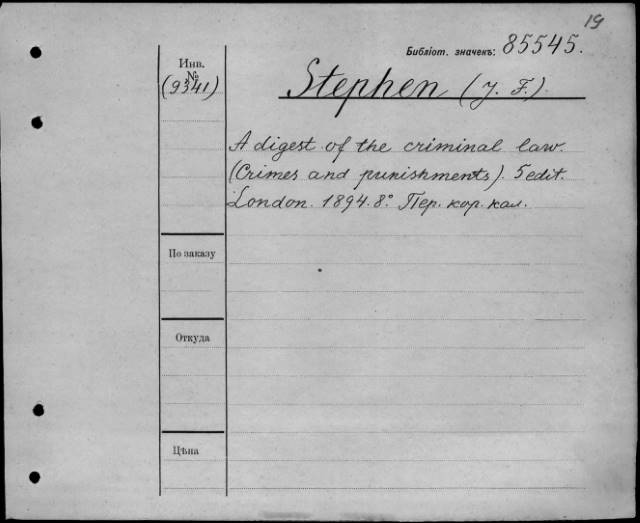 19
Библіот. значекъ: 85545.
Инв.
№
(9341)
Stephen (J. F.)
A digest of the criminal law.
(Crimes and punishments). 5 edit.
London. 1894. 8° Пер. кор. кал.
По заказу
Откуда
Цѣна